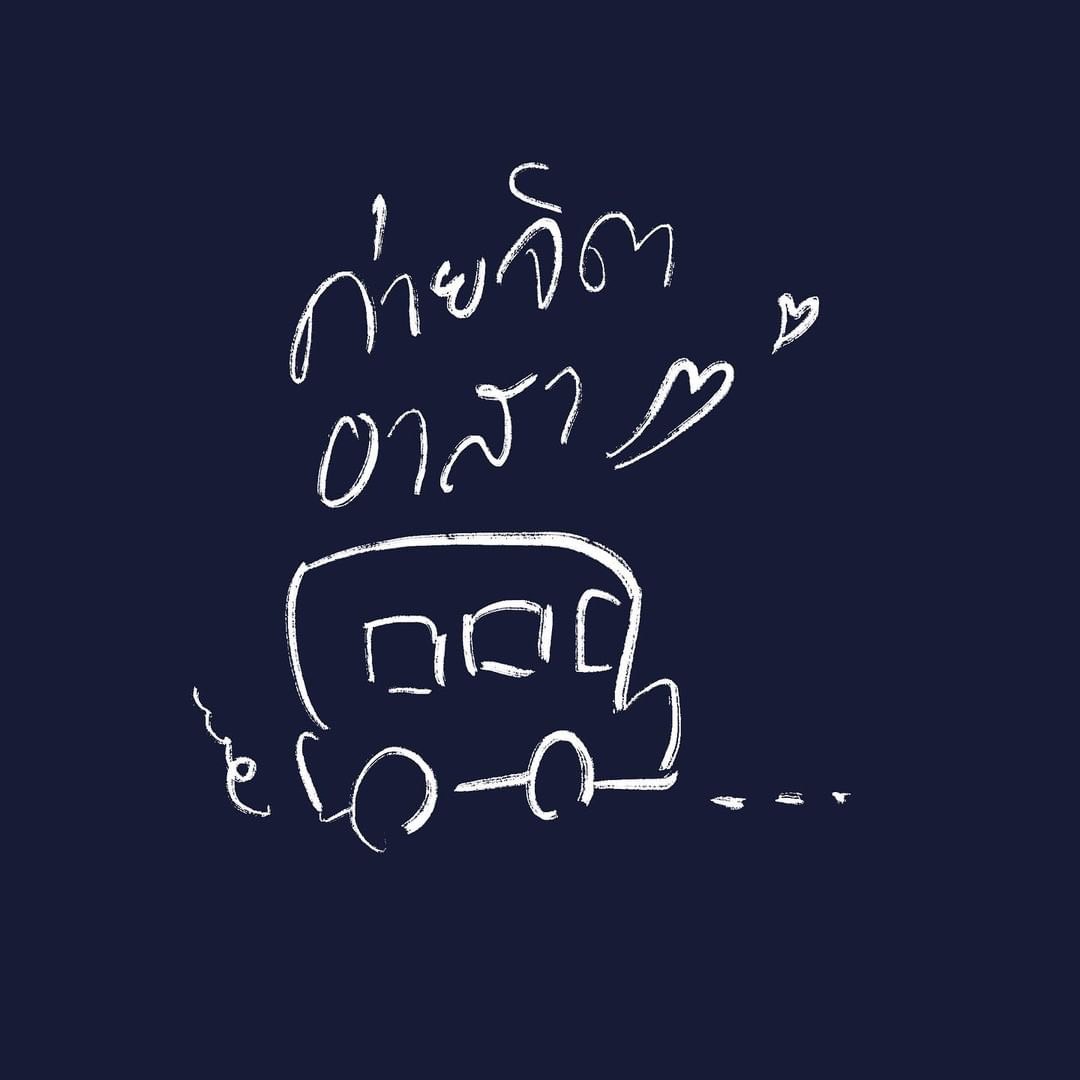 ค่ายจิต
อาสา